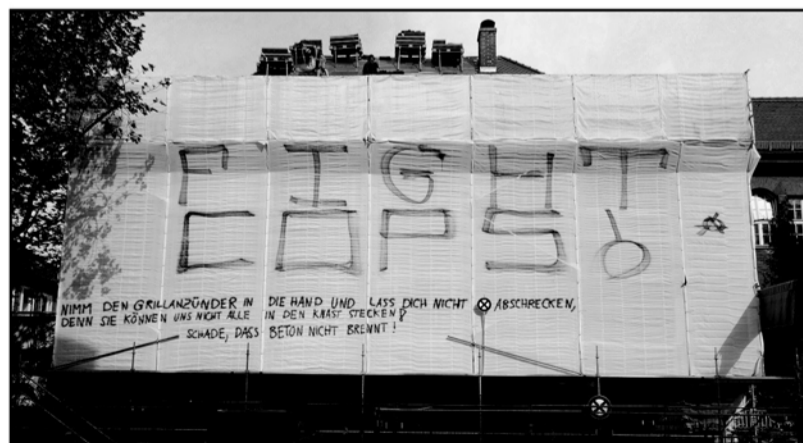 FIGHT
COPS!
NIMM DEN GRILLANZÜNDER IN DIE HAND UND LASS DICH NICHT ABSCHRECKEN,
DENN SIE KÖNNEN UNS NICHT ALLE IN DEN KNAST STECKEN!
SCHADE, DASS BETON NICHT BRENNT!